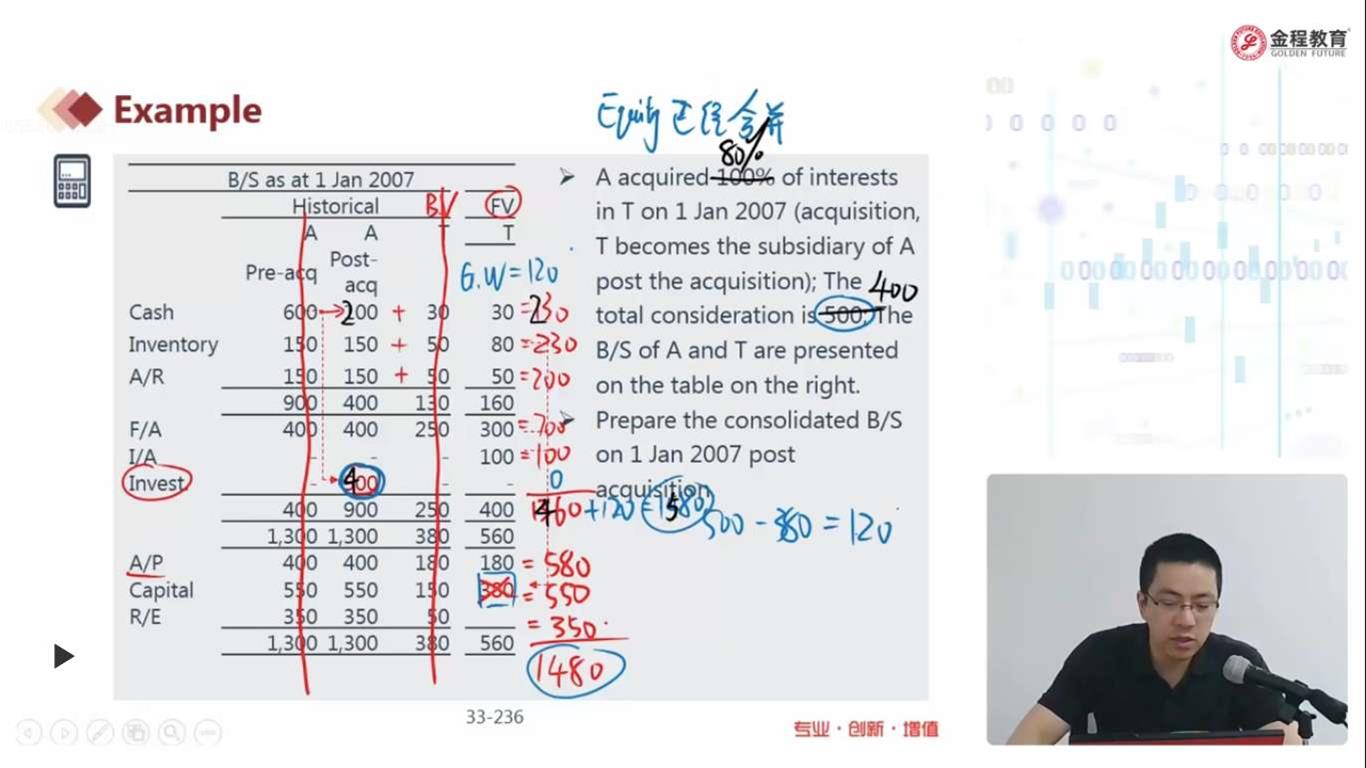 金程教育
GOLDEN FUTURE
Example
Equity 已经合并
B/S as at 1 Jan 2007
Historical BV FV
A A T T
Pre-acq Post-acq
G.W=120
Cash 600 → 200 + 30 30 =230
Inventory 150 150 + 50 80 =230
A/R 150 150 + 50 50 =200
900 400 130 160
F/A 400 400 250 300 =700
I/A - - - 100 =100
Invest. - 400 - - 0
400 900 250 400 1460+120=1580
1,300 1,300 380 560
A/P 400 400 180 180 = 580
Capital 550 550 150 380 = 550
R/E 350 350 50 = 350
1,300 1,300 380 560 1480
80%
A acquired 100% of interests
in T on 1 Jan 2007 (acquisition,
T becomes the subsidiary of A
post the acquisition); The 400
total consideration is 500; The
B/S of A and T are presented
on the table on the right.
Prepare the consolidated B/S
on 1 Jan 2007 post
acquisition
500 - 380 = 120
33-236
专业·创新·增值